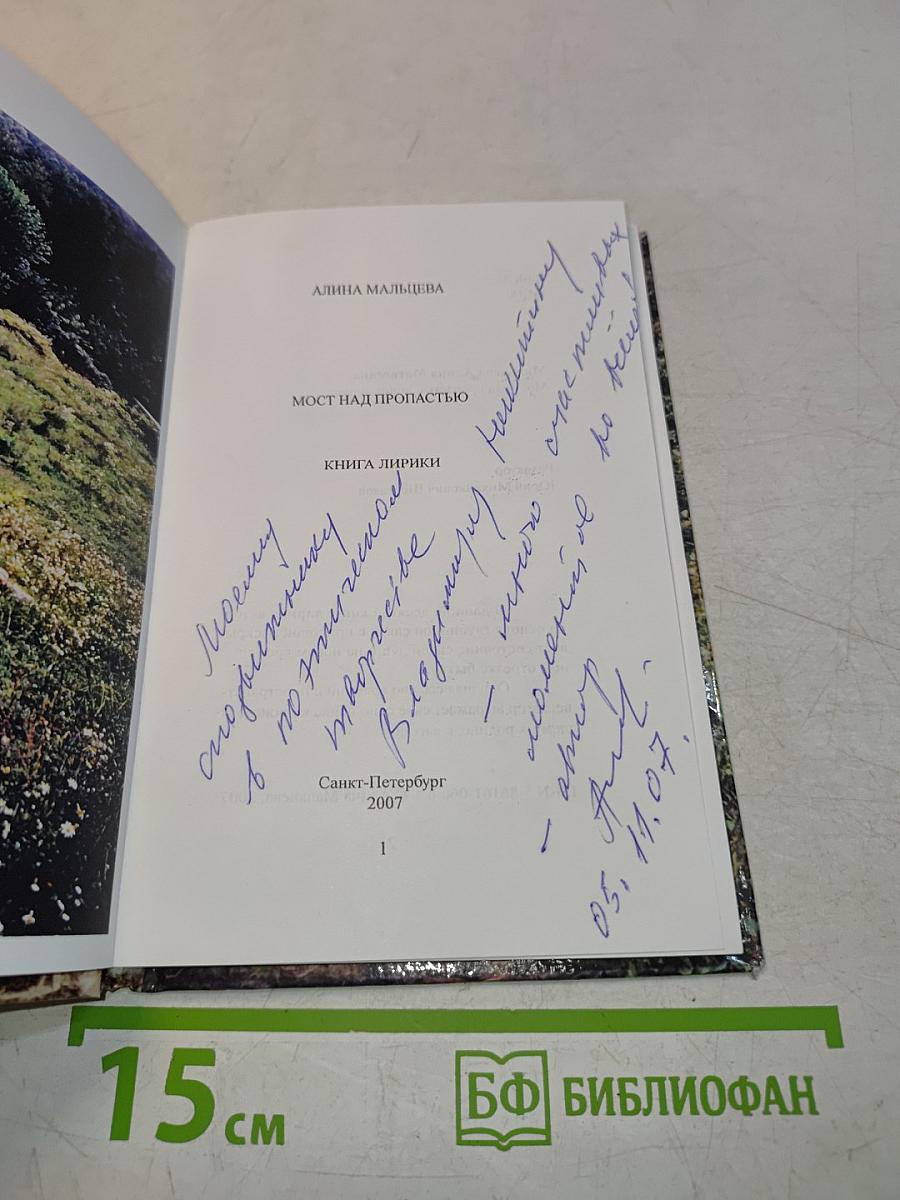 АЛИНА МАЛЬЦЕВА
МОСТ НАД ПРОПАСТЬЮ
КНИГА ЛИРИКИ
Моему
сподвижнику
в поэтическом
творчестве
Владимиру Никитину
– много счастливых
моментов во
– автор
05.11.07.
Санкт-Петербург
2007
1
15 см
БФ БИБЛИОФАН